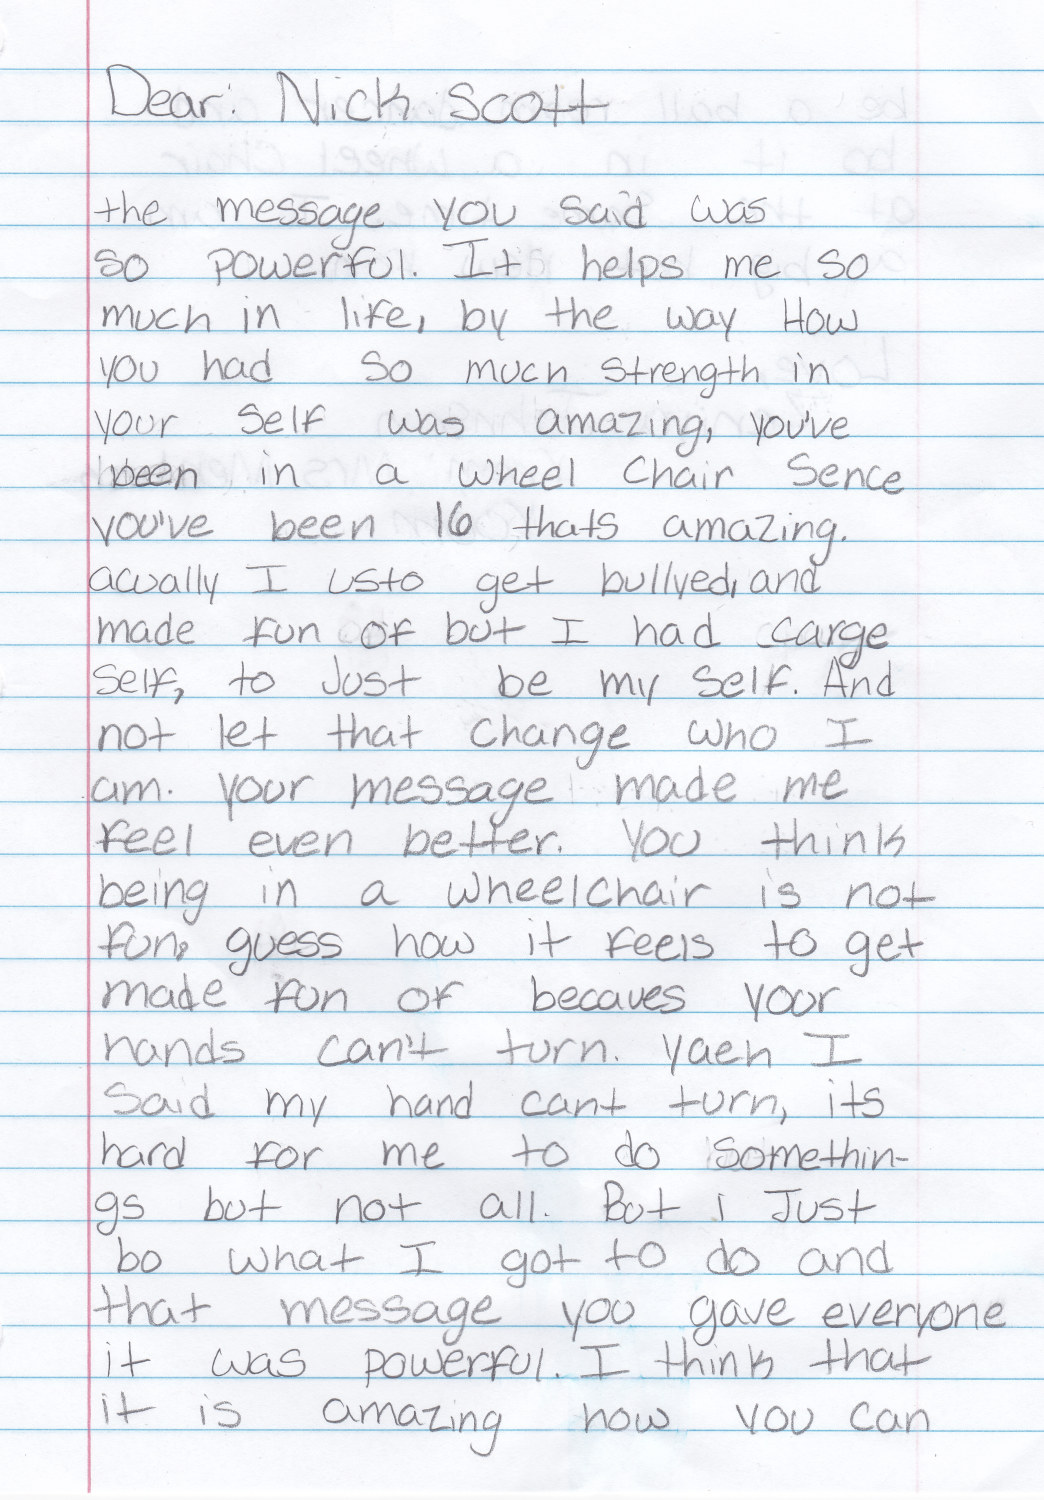 Dear: Nick Scott
the message you said was
so powerful. It helps me so
much in life, by the way How
you had so much strength in
your self was amazing, you've
been in a wheel chair sence
you've been 16 thats amazing.
acually I usto get bullyed, and
made fun of but I had carge
self, to Just be my self. And
not let that change who I
am. your message made me
feel even better. you think
being in a wheelchair is not
fun, guess how it feels to get
made fun of becaues your
hands can't turn. yaeh I
said my hand cant turn, its
hard for me to do somethin-
gs but not all. But i Just
bo what I got to do and
that message you gave everyone
it was powerful. I think that
it is amazing how you can